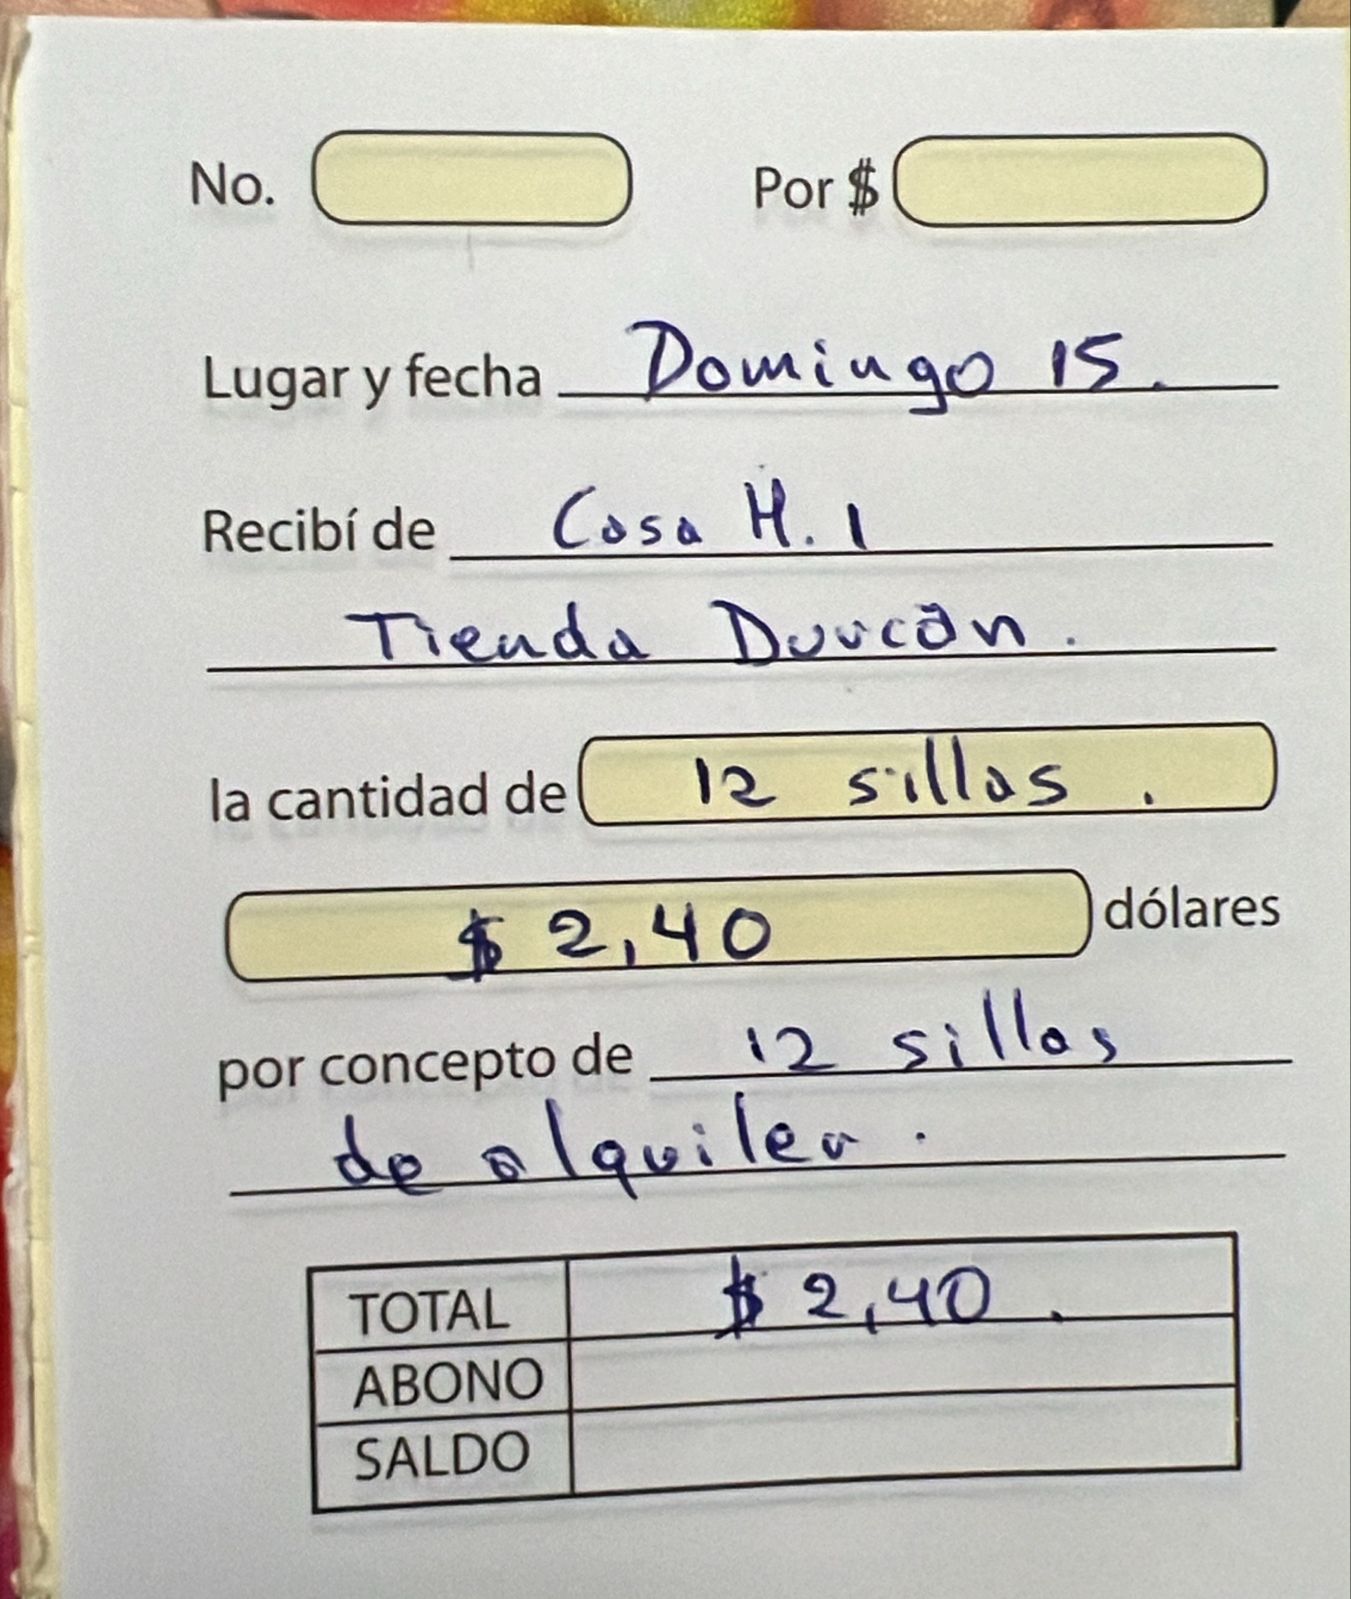 No. Por $
Lugar y fecha Domingo 15.
Recibí de Casa H. 1
Tienda Durcan.
la cantidad de 12 sillas.
$ 2,40 dólares
por concepto de 12 sillas
de alquiler.
TOTAL $ 2,40.
ABONO
SALDO